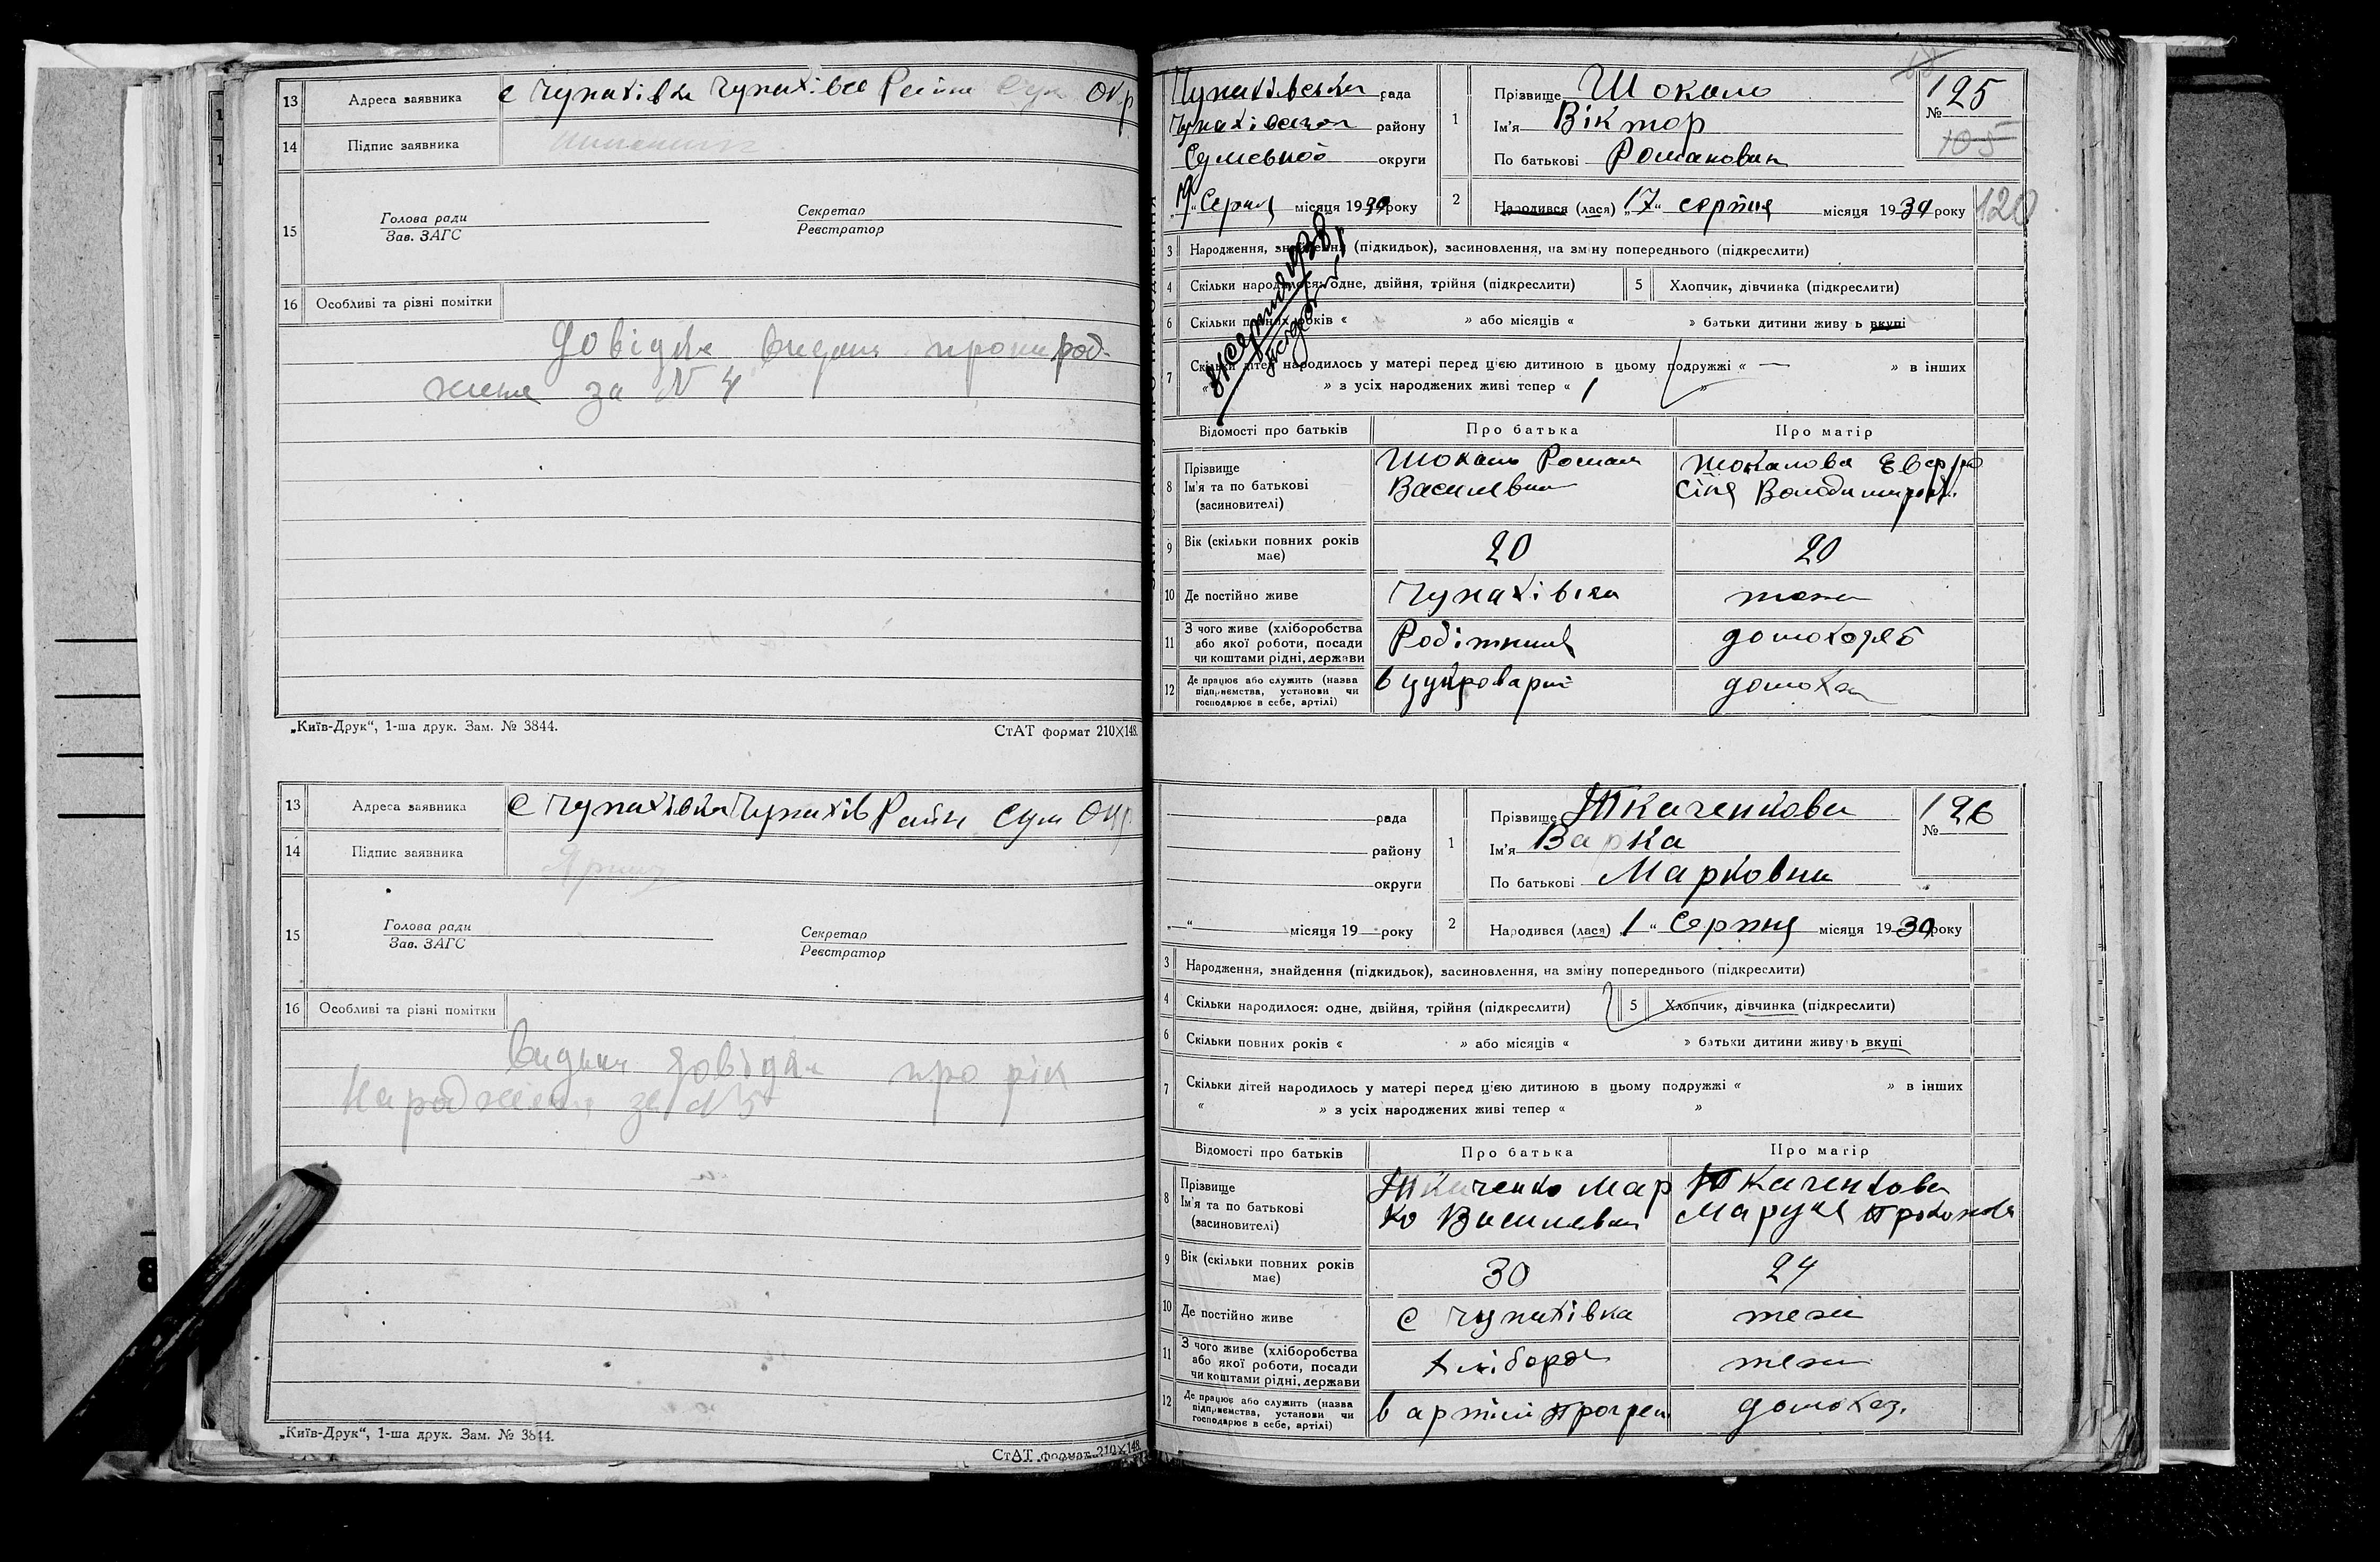 13 Адреса заявника с Чупахівка Чупахівс Райн Сум Окр
14 Підпис заявника
15 Голова ради
Зав. ЗАГС
Секретар
Реєстратор
16 Особливі та різні помітки
Довідка видана про народ-
ження за № 4
„Київ-Друк“, 1-ша друк. Зам. № 3844.
СтАТ формат 210×148.
13 Адреса заявника с Чупахівка Чупахів Райн Сум Окр
14 Підпис заявника
15 Голова ради
Зав. ЗАГС
Секретар
Реєстратор
16 Особливі та різні помітки
видана довідка про рік
народження за №5
„Київ-Друк“, 1-ша друк. Зам. № 3844.
СтАТ формат 210×148.
Чупахівська рада
Чупахівського району
Сумської округи
„19“ Серпня місяця 1930 року
1 Прізвище Шокало
Ім'я Віктор
По батькові Романович
№ 125
105
2 Народився (лася) „17“ серпня місяця 1930 року
120
3 Народження, знайдення (підкидьок), засиновлення, на зміну попереднього (підкреслити)
4 Скільки народилося: одне, двійня, трійня (підкреслити)
5 Хлопчик, дівчинка (підкреслити)
6 Скільки повних років « » або місяців « » батьки дитини живуть вкупі
7 Скільки дітей народилось у матері перед цією дитиною в цьому подружжі « — » в інших
« » з усіх народжених живі тепер « 1 »
Відомості про батьків Про батька Про матір
8 Прізвище
Ім'я та по батькові
(засиновителі)
Шокало Роман
Василевич
Шокалова Евфро
сіня Володимиров.
9 Вік (скільки повних років має) 20 20
10 Де постійно живе Чупахівка тежи
11 З чого живе (хліборобства
або якої роботи, посади
чи коштами рідні, держави
Робітник
домохозяб
12 Де працює або служить (назва
підприємства, установи чи
господарює в себе, артілі)
в цукроварні
домохаз
рада
району
округи
„ “ місяця 19 року
1 Прізвище Ткаченкова
Ім'я Варка
По батькові Марковна
№ 126
2 Народився (лася) „1“ Серпня місяця 1930 року
3 Народження, знайдення (підкидьок), засиновлення, на зміну попереднього (підкреслити)
4 Скільки народилося: одне, двійня, трійня (підкреслити)
5 Хлопчик, дівчинка (підкреслити)
6 Скільки повних років « » або місяців « » батьки дитини живуть вкупі
7 Скільки дітей народилось у матері перед цією дитиною в цьому подружжі « » в інших
« » з усіх народжених живі тепер « »
Відомості про батьків Про батька Про матір
8 Прізвище
Ім'я та по батькові
(засиновителі)
Ткаченко Мар
ко Василевич
Ткаченкова
Маруся Прокопова
9 Вік (скільки повних років має) 30 24
10 Де постійно живе с Чупахівка тежи
11 З чого живе (хліборобства
або якої роботи, посади
чи коштами рідні, держави
хлібороб
тежи
12 Де працює або служить (назва
підприємства, установи чи
господарює в себе, артілі)
в артілі Прогрес
домохаз.